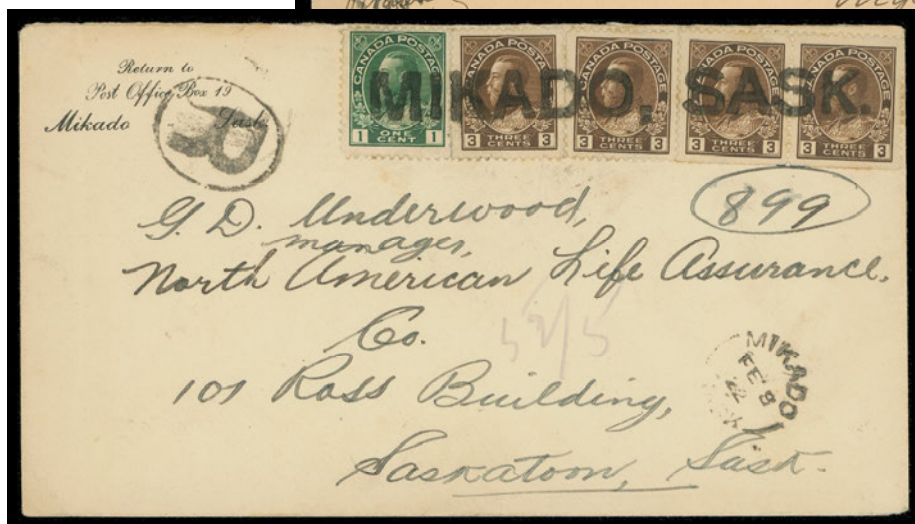 Return to
Post Office Box 19
Mikado Sask.
R
CANADA POSTAGE
1 ONE CENT 1
CANADA POSTAGE
3 THREE CENTS 3
CANADA POSTAGE
3 THREE CENTS 3
CANADA POSTAGE
3 THREE CENTS 3
CANADA POSTAGE
3 THREE CENTS 3
MIKADO, SASK.
899
G. D. Underwood,
manager,
North American Life Assurance.
Co.
101 Ross Building,
Saskatoon, Sask.
MIKADO
FE 8